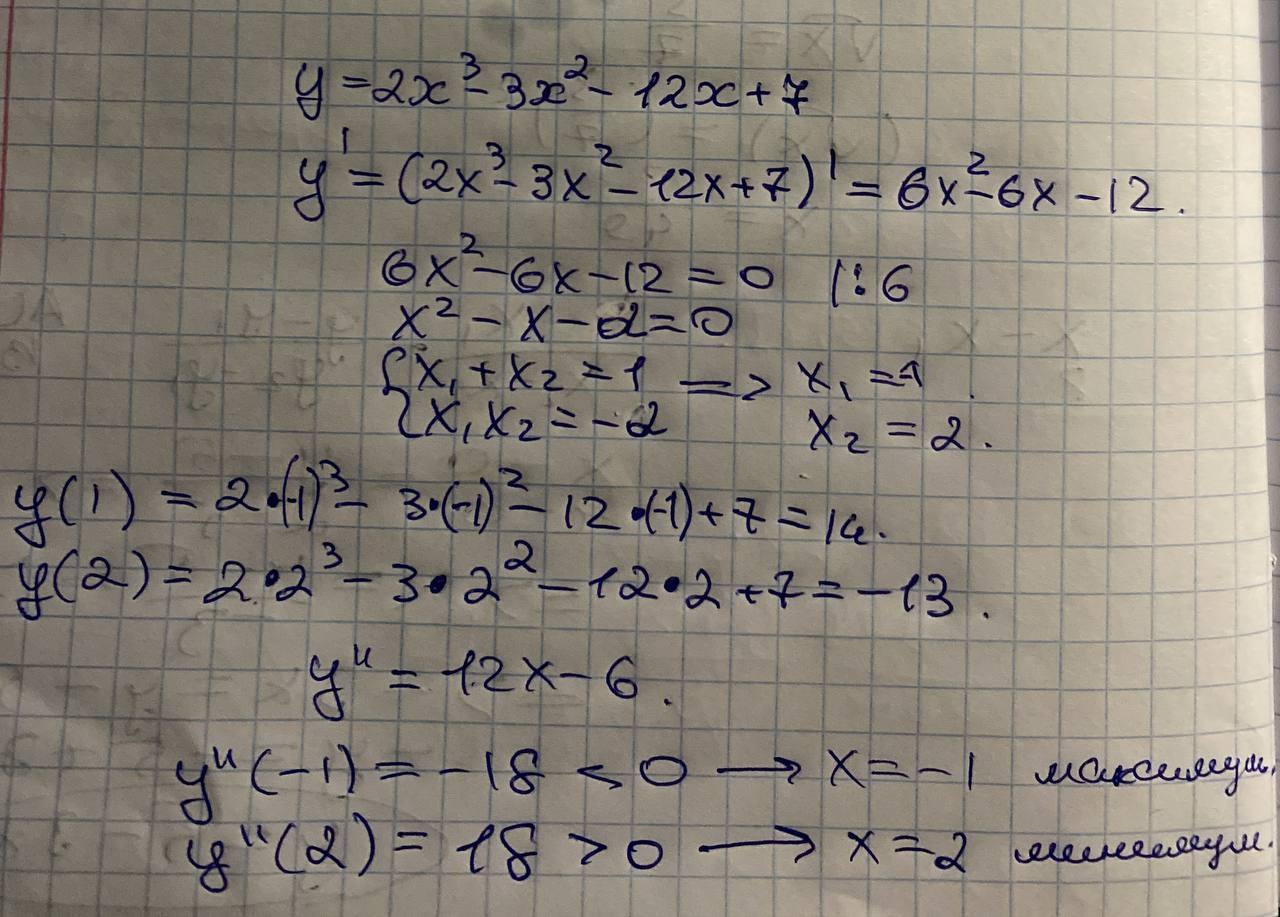 y = 2x³ - 3x² - 12x + 7
y' = (2x³ - 3x² - 12x + 7)' = 6x² - 6x - 12.
6x² - 6x - 12 = 0 |:6
x² - x - 2 = 0
{x₁ + x₂ = 1 => x₁ = -1
{x₁x₂ = -2 x₂ = 2.
y(1) = 2•(-1)³ - 3•(-1)² - 12•(-1) + 7 = 14.
y(2) = 2•2³ - 3•2² - 12•2 + 7 = -13.
y" = 12x - 6.
y"(-1) = -18 < 0 → x = -1 максимум.
y"(2) = 18 > 0 → x = 2 минимум.